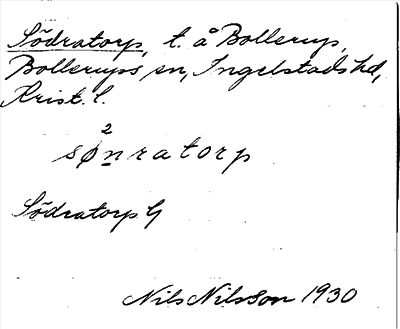 Södratorp, t. å Bollerup,
Bollerups sn, Ingelstads hd,
Krist. l.
2
sønratorp
Södratorp G
Nils Nilsson 1930